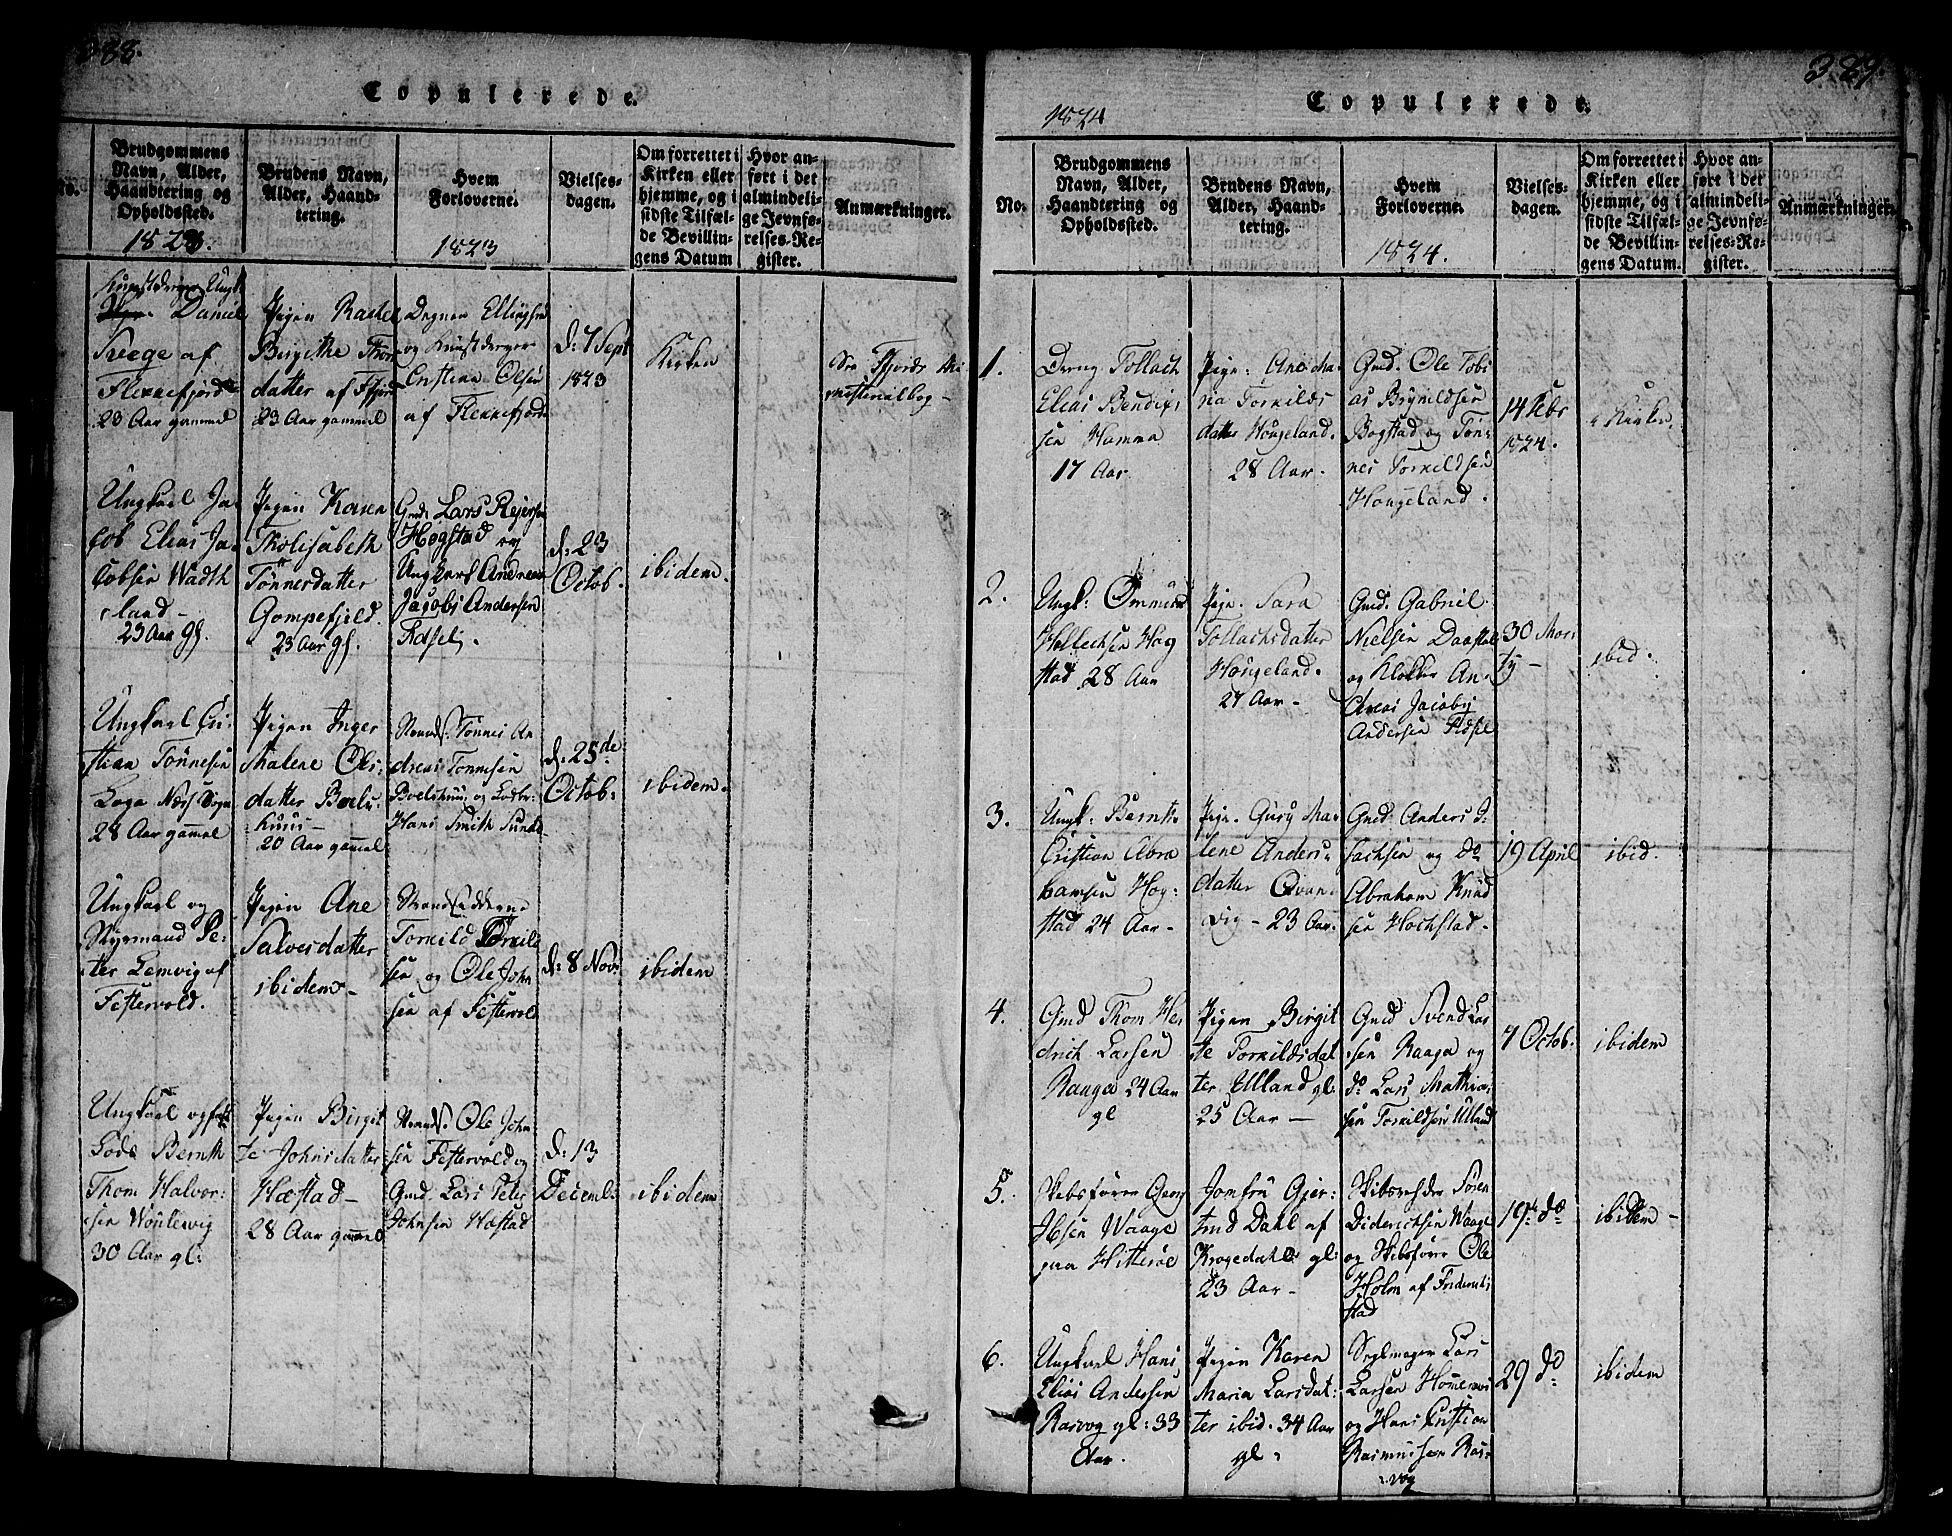 388.
Copulerede.
No.
Brudgommens
Navn, Alder,
Haandtering og
Opholdssted.
1823.
Brudens Navn,
Alder, Haand-
tering.
Hvem
Forloverne.
1823
Vielses-
dagen.
Om forrettet i
Kirken eller
hjemme, og i
sidste Tilfæl-
de Bevillin-
gens Datum
Hvor an-
ført i det
almindeli-
ge Jevnfø-
relses-Re-
gister.
Anmærkninger.
Daniel
af
Flekkefjord
23 Aar gammel
Pigen Rachel
Birgithe Thor
datter af Fjord
23 Aar gammel
Degnen Ellingsen
og
Cristian Olsen
af Flekkefjord
d: 7 Sept
1823
Kirken
Ungkarl Ja-
cob Elias Ja-
cobsen Wadth
land -
23 Aar gl.
Pigen Karen
Tholisabeth
Tønnesdatter
Gompefjeld.
23 Aar gl.
Gmd. Lars Rejersen
Høgstad og
Ungkarl Andreas
Jacobi Andersen
Fidsel.
d: 23
Octob.
ibidem.
Ungkarl Cri-
stian Tønnesen
Loga Næss Sogn
28 Aar gammel
Pigen Inger
Malene Ols-
datter Boels-
huus -
20 Aar gammel
Strands. Tønnes An
dreas Tønnesen
Boelshuus og Lodbr:
Hans Smith Sunde
d: 25de
Octob:
ibidem.
Ungkarl og
Styrmand Pe-
ter Lemvig af
Festervold.
Pigen Ane
Salvesdatter
ibidem -
Strandsidderne
Torkild Torkild
sen og Ole John
sen af Festervold
d: 8 Nov:
ibidem
Ungkarl og fast
Lods Bernth
Thom Halvor-
sen
30 Aar gl:
Pigen Birgit
te Johnsdatter
Hæstad -
28 Aar gammel
Strands. Ole John
sen Festervold og
Gmd. Lars Peter
Johnsen Hæstad
d: 13
Decemb:
ibidem
389.
Copulerede.
1824
No.
Brudgommens
Navn, Alder,
Haandtering og
Opholdssted.
Brudens Navn,
Alder, Haand-
tering.
Hvem
Forloverne.
1824.
Vielses-
dagen.
Om forrettet i
Kirken eller
hjemme, og i
sidste Tilfæl-
de Bevillin-
gens Datum.
Hvor an-
ført i det
almindeli-
ge Jevnfø-
relses-Re-
gister.
Anmærkninger.
1.
Dreng Tollach
Elias Bendix
sen Hamma
17 Aar
Pige: Ane Ma-
ria Torkilds
datter Hougeland.
28 Aar.
Gmd. Ole Tobi
as Brynildsen
Bogstad og Tøn-
nes Torkildsen
Hougeland.
14 Febr
1824.
Kirken
2.
Ungk: Ommund
Hog
stad 28 Aar
Pige. Sara
Tollachsdatter
Hougeland.
27 Aar -
Gmd. Gabriel
Nielsen Daastøl
og Klokker An-
dreas Jacobi
Andersen Fidsel
30 Mar
ty -
ibid.
3.
Ungk: Bernt
Cristian Abra
hamsen Hog-
stad 24 Aar -
Pige. Gury Ma-
lene Anders-
datter Qvan-
vig - 23 Aar.
Gmd. Anders I-
sachsen og do
Abraham Knud
sen Hochstad.
19 April
ibid.
4.
Gmd Thom Hen
drich Larsen
Raage 24 Aar
gl
Pigen Birgit
te Torkildsdat
ter Ulland gl:
25 Aar -
Gmd Svend Lar
sen Raaga og
do Lars Mathia
sen Torkildsen Ulland
7 Octob:
ibidem
5.
Skibsfører Georg
Ibsen Waage
paa Hitterøe
Jomfru Gjer-
trud Dahl af
Krogedahl gl:
23 Aar -
Skibsrehder Søren
Diderichsen Waage
og Skibsfører Ole
Holm af Friderich-
stad
19de do
ibidem -
6.
Ungkarl Hans
Elias Andersen
Rasvog gl: 33
Aar.
Pigen Karen
Maria Larsdat-
ter ibid. 34 Aar
gl.
Seglmager Lars
Larsen
og Hans Cristian
Rasmussen Ras-
vog
29 do
ibidem